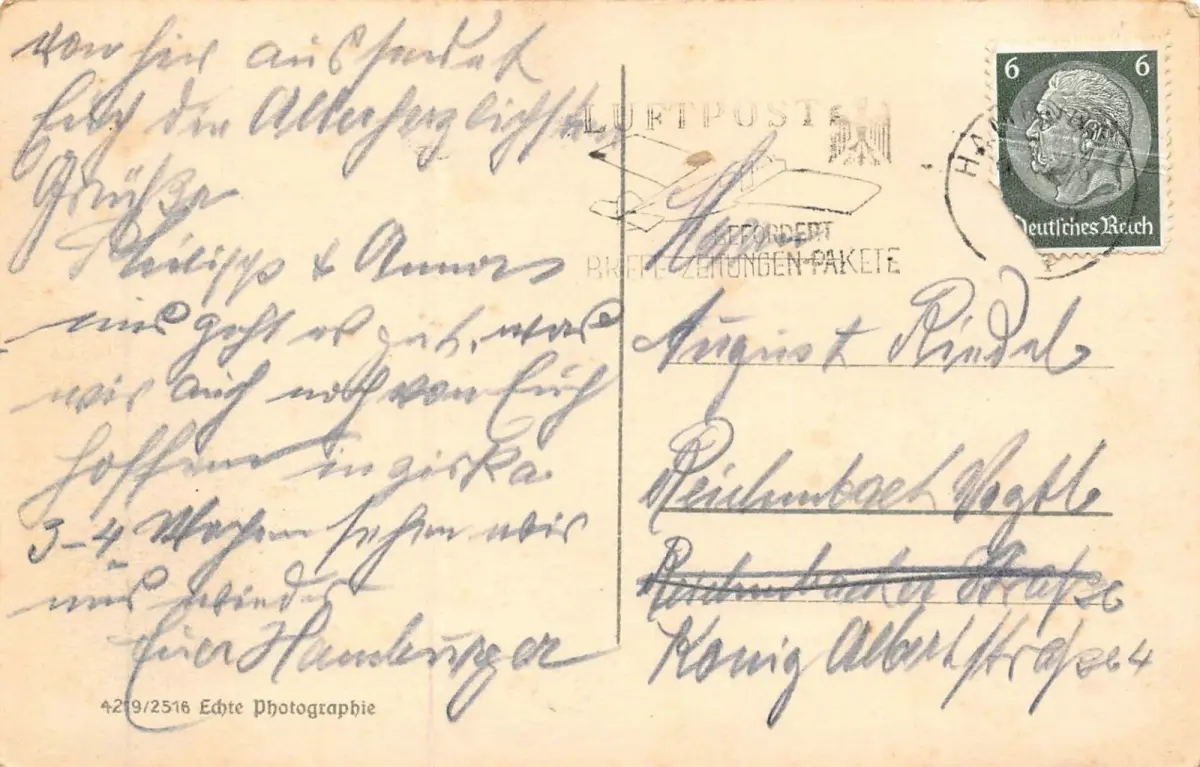 von hier aus sendet
Euch die Allerherzlichsten
Grüße
Philipp & Anna
uns geht es gut, was
wir auch noch von Euch
hoffen in zirka
3-4 Wochen sehen wir
uns wieder
Euer Hamburger
4219/2516 Echte Photographie
LUFTPOST
BEFÖRDERT
BRIEFE-ZEITUNGEN-PAKETE
6 6
Deutsches Reich
August Riedel
Reichenbach Vogtl
Reichenbacher Straße
König Albertstraße 4